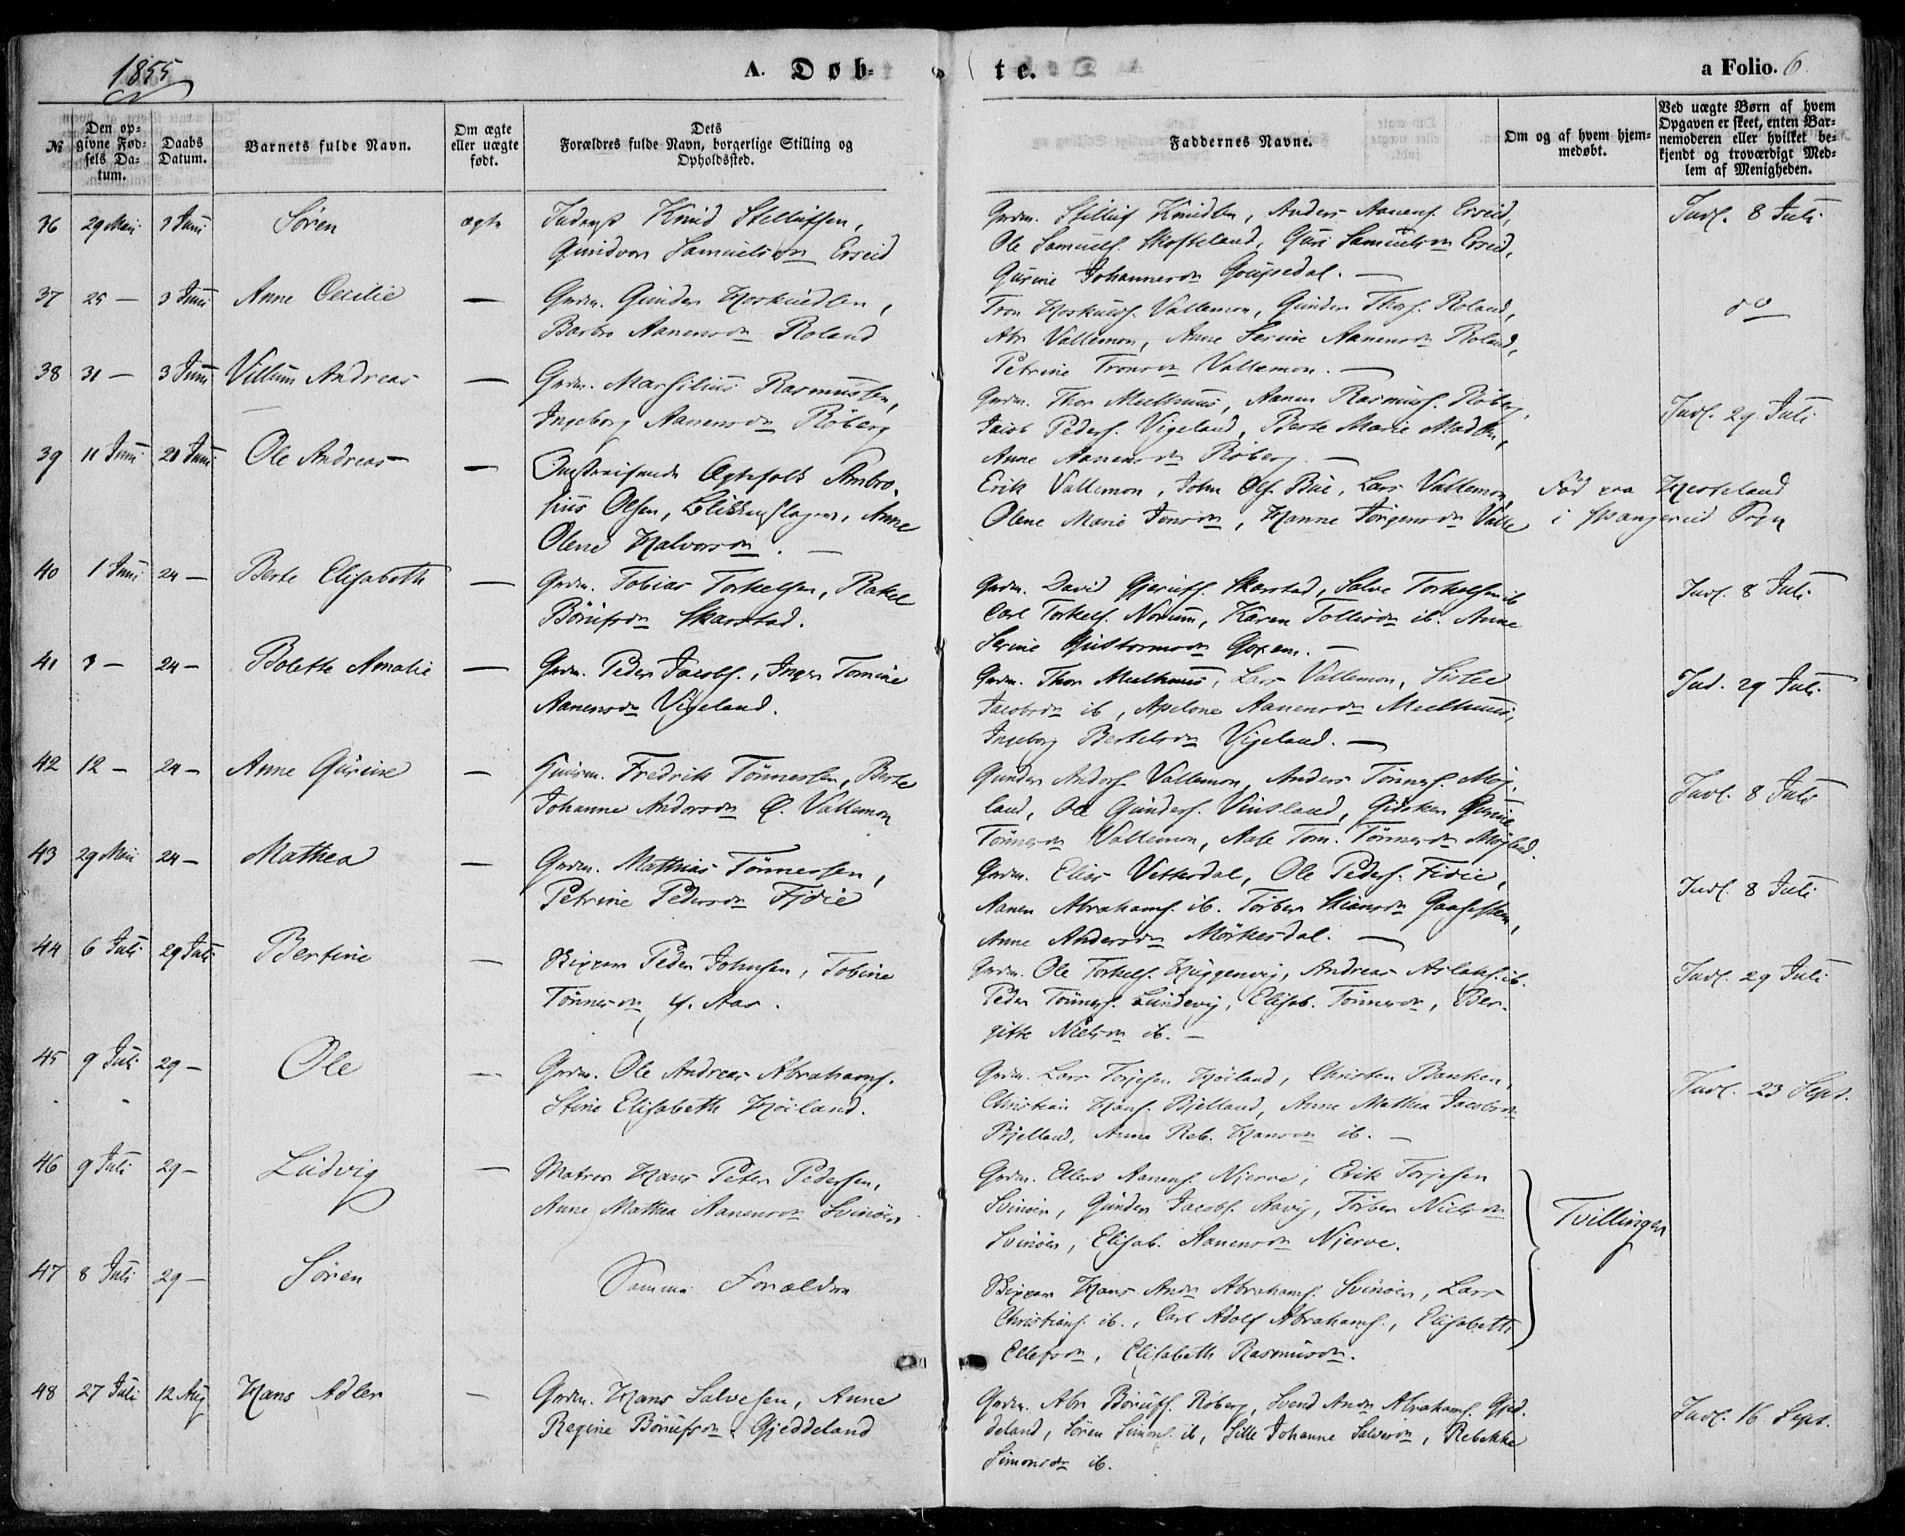 1855
A. Døb-
te.
a Folio. 6.
№
Den op-
givne Fød-
sels Da-
tum.
Daabs
Datum.
Barnets fulde Navn.
Om ægte
eller uægte
født.
Dets
Forældres fulde Navn, borgerlige Stilling og
Opholdssted.
Faddernes Navne.
Om og af hvem hjem-
medøbt.
Ved uægte Børn af hvem
Opgaven er skeet, enten Bar-
nemoderen eller hvilket be-
kjendt og troværdigt Med-
lem af Menigheden.
36 29 Mai 3 Juni Sören ægte Knud Stellufsen,
Samuelsdr Erseid
Grdm. Knudsen, Anders Aanens. Erseid,
Ole Samuels. Skofteland, Guri Samuelsdr Erseid,
Gurine Johannesdr
Indl. 8 Juli
37 25 — 3 Juni Anne Cecilie — Grdm. Gunder Hoskuldsen,
Aanensdr Roland
Tron Hoskulds. Vallemon, Gunder Roland,
Abr Vallemon, Anne Serine Aanensdr Roland,
Petrine Tronsdr Vallemon. —
do
38 31 — 3 Juni Villum Andreas — Grdm. Marsilius Rasmussen,
Ingeborg Aanensdr Röberg
Grdm. Thor Meelhuus, Aanen Rasmus. Röberg,
Jacob Peders. Vigeland, Berte Marie
Anne Aanensdr Röberg. —
Indl. 29 Juli
39 11 Juni 21 Juni Ole Andreas — Omstreifende Ægtefolk Ambro-
sius Olsen, Blikkenslager, Anne
Olene Halvorsdr. —
Erik Vallemon, John Ols. Bue, Lars Vallemon,
Olene Marie Jensdr, Hanne Jörgensdr Valle
Född paa
i Spangereid Sogn
40 1 Juni 24 — Berte Elisabeth — Grdm. Tobias Torkelsen, Rakel
Börufsdr Skarstad.
Grdm. David Skarstad, Salve Torkelsen ib
Carl Torkels. Karen Tollisdr ib. Anne
Serine Guttormsdr
Indl. 8 Juli
41 3 — 24 — Bolette Amalie — Grdm. Peder Jacobs., Inger Tomine
Aanensdr Vigeland.
Grdm. Thor Meelhuus, Lars Vallemon,
Jacobsdr ib, Apelone Aanensdr Meelhuus,
Ingeborg Bertelsdr Vigeland. —
Ind. 29 Juli
42 12 — 24 — Anne Gurine — Huusm. Fredrik Tönnessen, Berte
Johanne Andersdr Ö. Vallemon
Gunder Anders Vallemon, Anders Tönnes. Møg-
land, Ole Gunders. Gurine
Tönnesdr Vallemon, Tom. Tönnesdr Møgland.
Indl. 8 Juli
43 29 Mai 24 — Mathea — Grdm. Mathias Tönnessen,
Petrine Pedersdr Fjdie
Grdm. Elias Vetterdal, Ole Peders. Fidie,
Aanen Abrahams. ib. Torbor
Anne Andersdr Mörkesdal. —
Indl. 8 Juli
44 6 Juli 29 Juli Bertine — Peder Johnsen, Tobine
Tönnesdr, Y. Aas.
Grdm. Ole Torkels. Huggenvig, Andreas Aslaks. ib.
Peder Tönnes. Lundevig, Elisab. Tönnesdr, Ber-
gitte Nielsdr ib. —
Indl. 29 Juli
45 9 Juli 29 — Ole — Grdm. Ole Andreas Abrahams.
Stine Elisabeth Höiland.
Grdm. Lars Torjesen Höiland, Christen Banken,
Christian Hans. Bjelland, Anne Mathea Jacobsdr
Bjelland, Anna Reb. Hansdr ib. —
Indl. 23 Sept.
46 9 Juli 29 — Ludvig — Matros Hans Peter Pedersen,
Anne Mathea Aanensdr Svinöer
Grdm. Ellers Aanens. Njerve, Erik Torjesen
Svinöer, Gunder Jacobs. Aavig, Torber Nielsdr
Svinöer, Elisab. Aanensdr Njerve.
Tvillinger
47 8 Juli 29 — Sören Samme Forældre
Hans Andr Abrahams. Svinöer, Lars
Christians. ib., Carl Adolf Abrahams., Elisabeth
Ellefsdr, Elisabeth Rasmusdr.
48 27 Juli 12 Aug Hans Adler — Grdm. Hans Salvesen, Anne
Regine Börufsdr Gjeddeland
Grdm. Abr Börufs. Röberg, Svend Andr Abrahams. Gjed-
deland, Sören Simons. ib, Sille Johanne Salvesdr, Rebekke
Simonsdr ib.
Indl. 16 Sept.